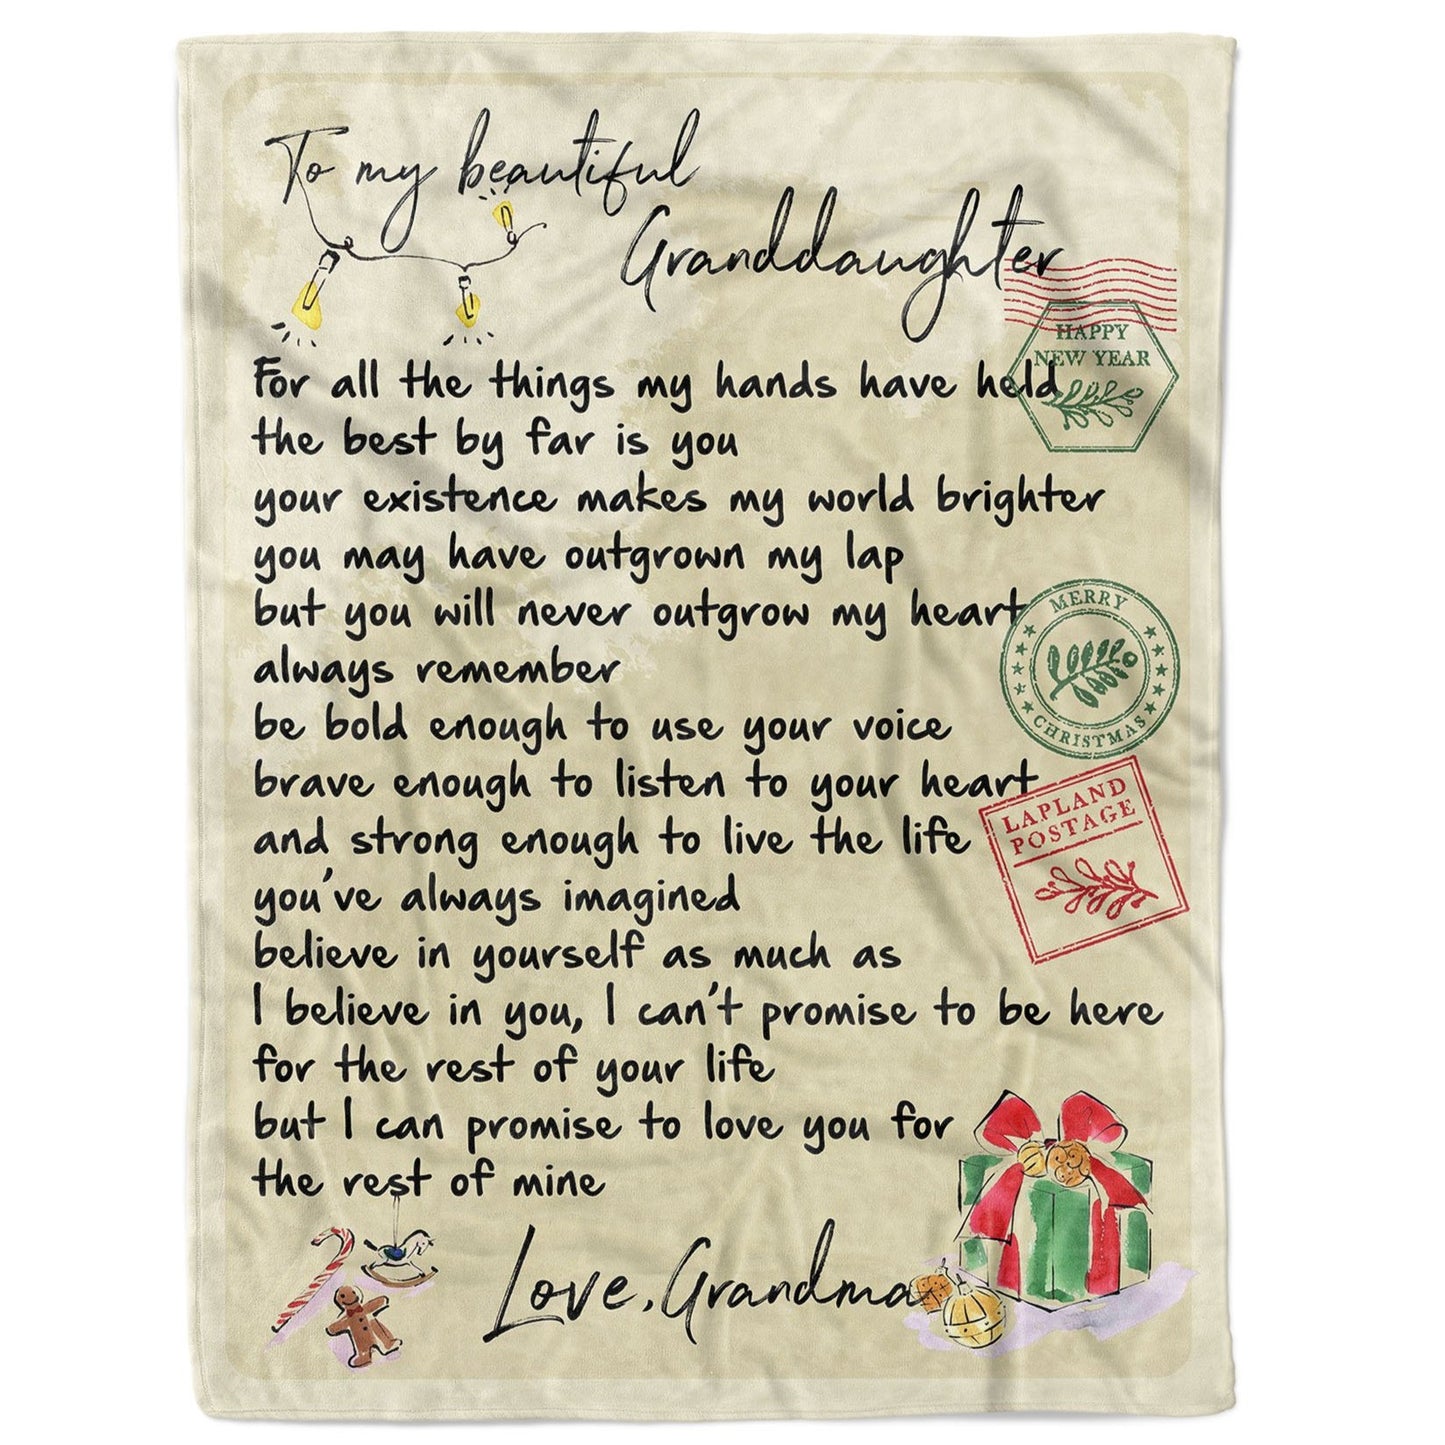 To my beautiful
Granddaughter
HAPPY
NEW YEAR
For all the things my hands have held
the best by far is you
your existence makes my world brighter
you may have outgrown my lap
but you will never outgrow my heart
MERRY
CHRISTMAS
always remember
be bold enough to use your voice
brave enough to listen to your heart
LAPLAND
POSTAGE
and strong enough to live the life
you've always imagined
believe in yourself as much as
I believe in you, I can't promise to be here
for the rest of your life
but I can promise to love you for
the rest of mine
Love, Grandma